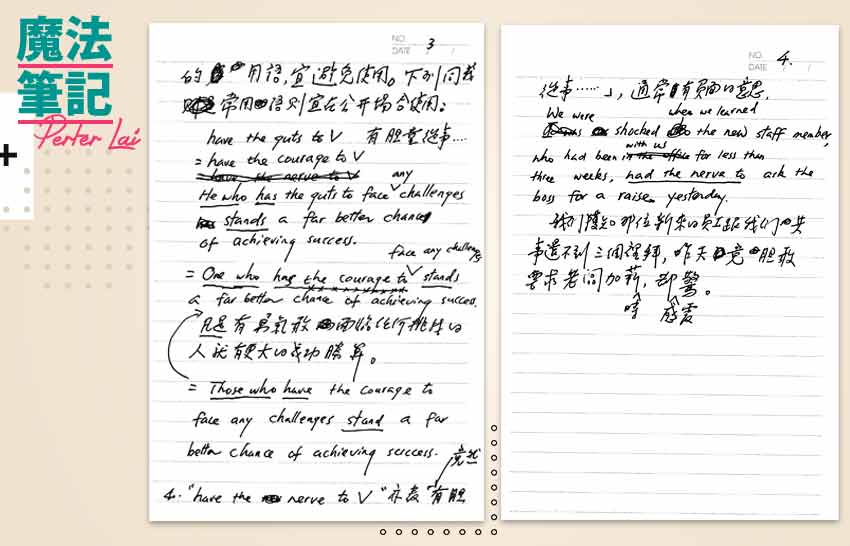 魔法
筆記
Perter Lai
+
NO. 3
DATE / /
的用語,宜避免使用。下列同義
常用語則宜在公開場合使用:
have the guts to V 有胆量從事…
= have the courage to V
= have the nerve to V
any
He who has the guts to face challenges
stands a far better chance
of achieving success.
face any challenges
= One who has the courage to stands
a far better chance of achieving success.
凡是有勇氣敢面臨任何挑戰的
人就有更大的成功勝算。
= Those who have the courage to
face any challenges stand a far
better chance of achieving success.
竟然
4. "have the nerve to V" 亦表"有胆
NO. 4.
DATE /
從事……」,通常有負面的意思.
We were when we learned
shocked the new staff member,
with us
who had been in the office for less than
three weeks, had the nerve to ask the
boss for a raise yesterday.
我們獲知那位新來的員工跟我們共
事還不到三個禮拜,昨天竟胆敢
要求老闆加薪,都驚。
時 感震